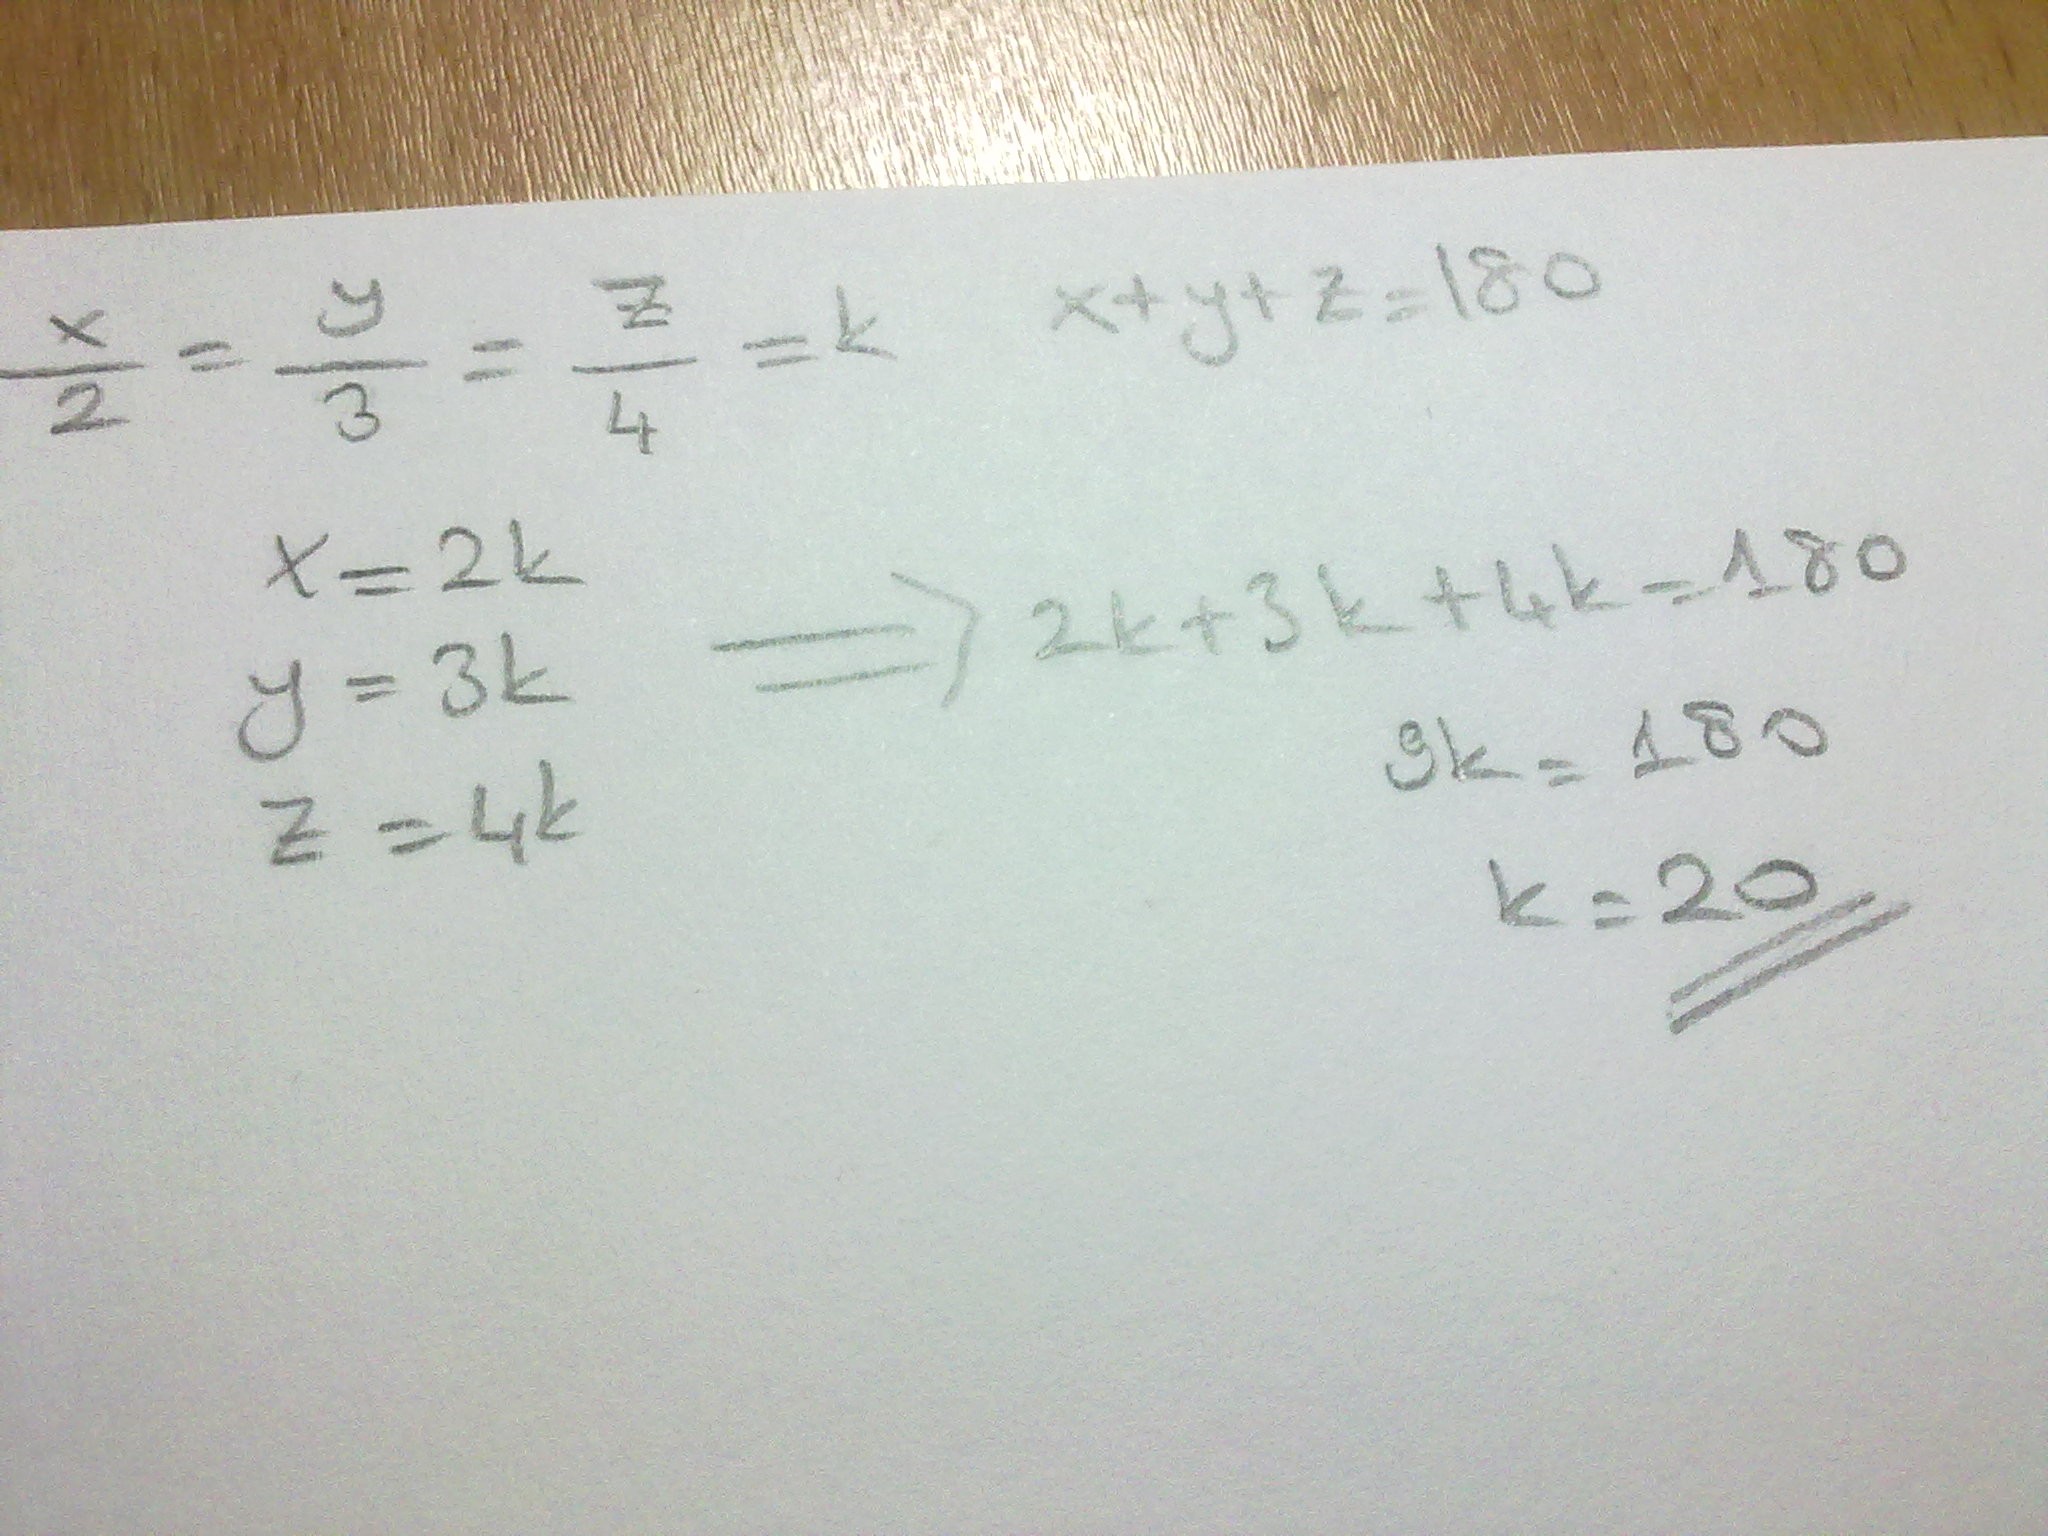 x/2 = y/3 = z/4 = k x+y+z=180
x=2k
y=3k
z=4k
⇒ 2k+3k+4k=180
9k=180
k=20